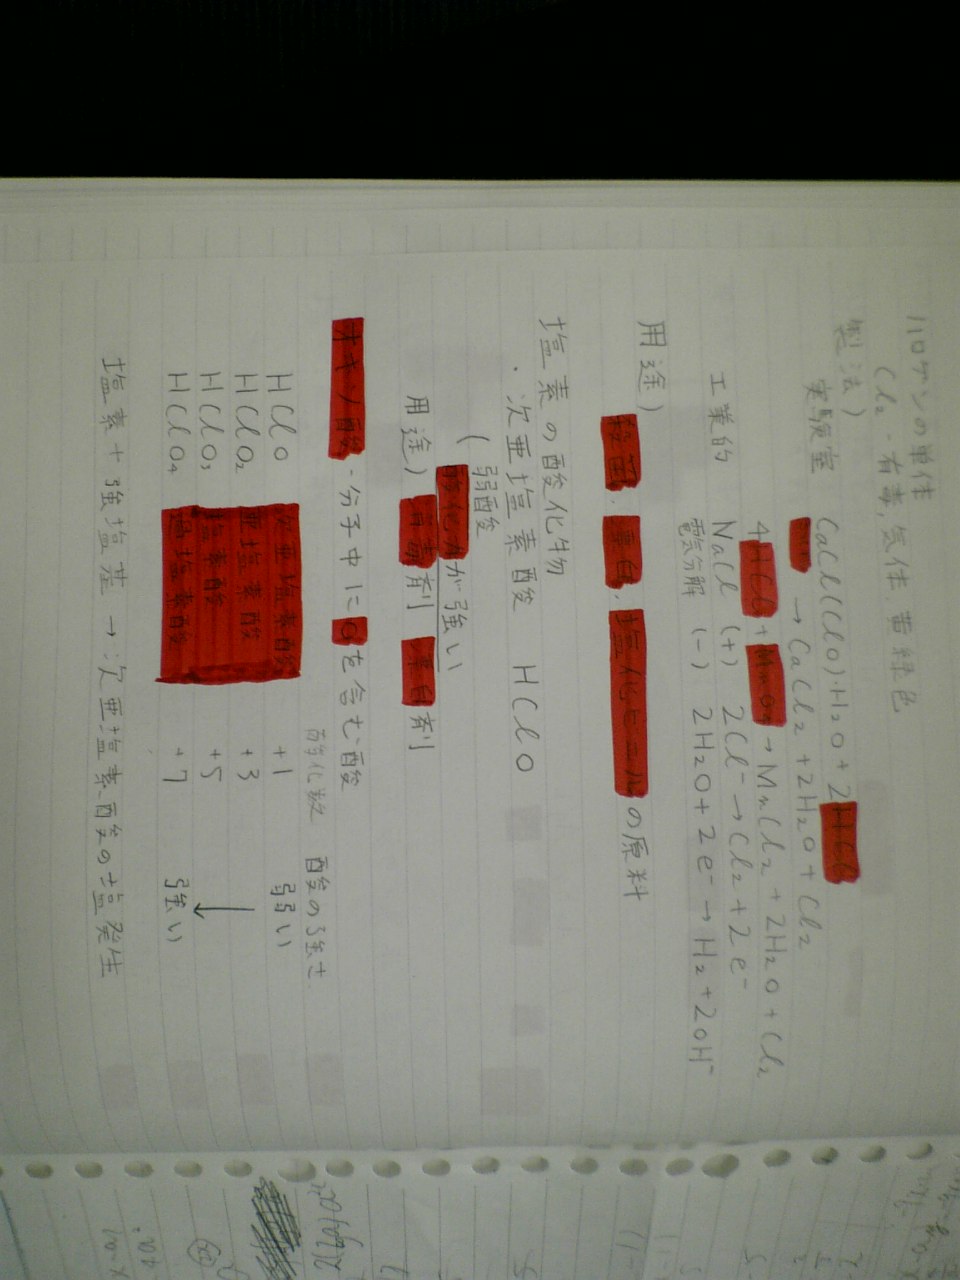 ハロゲンの単体
(Cl₂ - 有毒,気体 黄緑色
製法)
実験室 CaCl(ClO)・H₂O + 2HCl
→ CaCl₂ + 2H₂O + Cl₂
4HCl + MnO₂ → MnCl₂ + 2H₂O + Cl₂
工業的 NaCl (+) 2Cl⁻ → Cl₂ + 2e⁻
電気分解 (-) 2H₂O + 2e⁻ → H₂ + 2OH⁻
用途)
殺菌, 漂白, 塩化ビニルの原料
塩素の酸化物
・次亜塩素酸 HClO
( 弱酸
酸化力が強い
用途) 消毒剤 漂白剤
オキソ酸・分子中にOを含む酸
酸化数 酸の強さ
HClO 次亜塩素酸 +1 弱い
HClO₂ 亜塩素酸 +3
HClO₃ 塩素酸 +5 ↓
HClO₄ 過塩素酸 +7 強い
塩素+強塩基 → 次亜塩素酸の塩発生